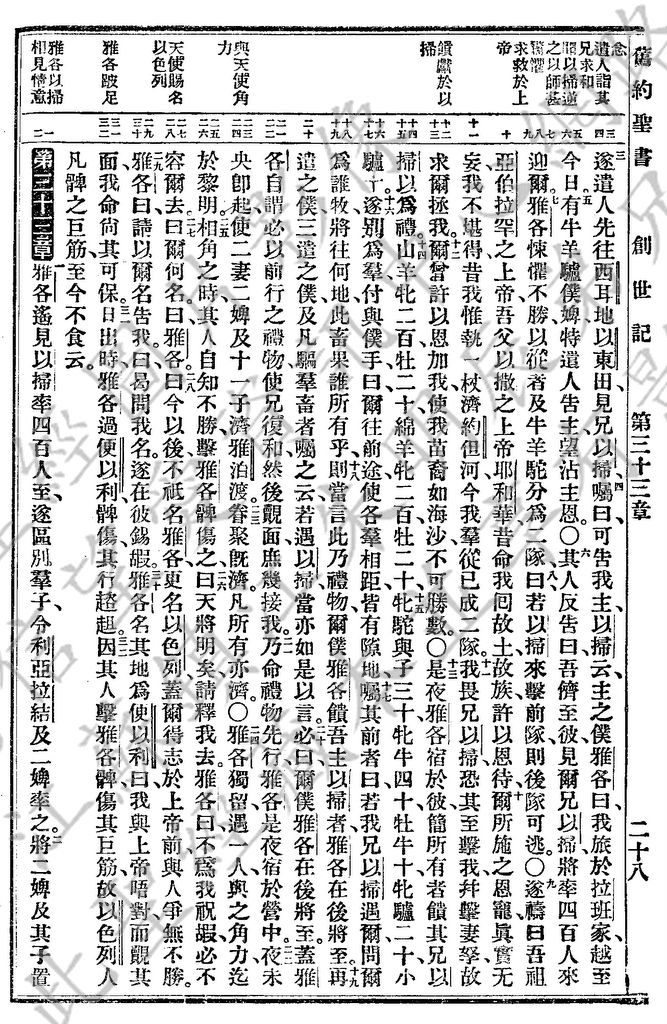 舊約聖書 創世記 第三十三章 二十八
遺人詣其
兄求和
以掃逆
之以師甚
驚懼
求救於上
帝
饋獻於以
掃
與天使角
力
天使賜名
以色列
雅各跛足
雅各以掃
相見情意
遂遣人先往西耳地以東田見兄以掃囑曰可告我主以掃云主之僕雅各曰我旅於拉班家越至
今日有牛羊驢僕婢特遣人告主望沾主恩〇其人反告曰吾儕至彼見爾兄以掃將率四百人來
迎爾雅各悚懼不勝以從者及牛羊駝分爲二隊曰若以掃來擊前隊則後隊可逃〇遂禱曰吾祖
亞伯拉罕之上帝吾父以撒之上帝耶和華昔命我囘故土故族許以恩待爾所施之恩寵眞實無
妄我不堪得昔我惟執一杖濟約但河今我羣從已成二隊我畏兄以掃恐其至擊我幷擊妻孥故
求爾拯我爾曾許以恩加我使我苗裔如海沙不可勝數〇是夜雅各宿於彼簡所有者饋其兄以
掃以爲禮山羊牝二百牡二十綿羊牝二百牡二十牝駝與子三十牝牛四十牡牛十牝驢二十小
驢十遂別爲羣付與僕手曰爾往前途使各羣相距皆有隙地囑其前者曰若我兄以掃遇爾問爾
爲誰牧將往何地此畜果誰所有乎則當言此乃禮物爾僕雅各饋吾主以掃者雅各在後將至再
遣之僕三遣之僕及凡驅羣畜者囑之云若遇以掃當亦如是以言必曰爾僕雅各在後將至蓋雅
各自謂必以前行之禮物使兄復和然後覿面庶幾接我乃命禮物先行雅各是夜宿於營中夜未
央卽起使二妻二婢及十一子濟雅泊渡眷聚旣濟凡所有亦濟〇雅各獨留遇一人與之角力迄
於黎明相角之時其人自知不勝擊雅各髀傷之曰天將明矣請釋我去雅各曰不爲我祝嘏必不
容爾去曰爾何名曰雅各曰今以後不祗名雅各更名以色列蓋爾得志於上帝前與人爭無不勝
雅各曰請以爾名告我曰曷問我名遂在彼錫嘏雅各名其地爲便以利曰我與上帝晤對而覿其
面我命尚其可保日出時雅各過便以利髀傷其行趦趄因其人擊雅各髀傷其巨筋故以色列人
凡髀之巨筋至今不食云
第三十三章 雅各遙見以掃率四百人至遂區別羣子令利亞拉結及二婢率之將二婢及其子置